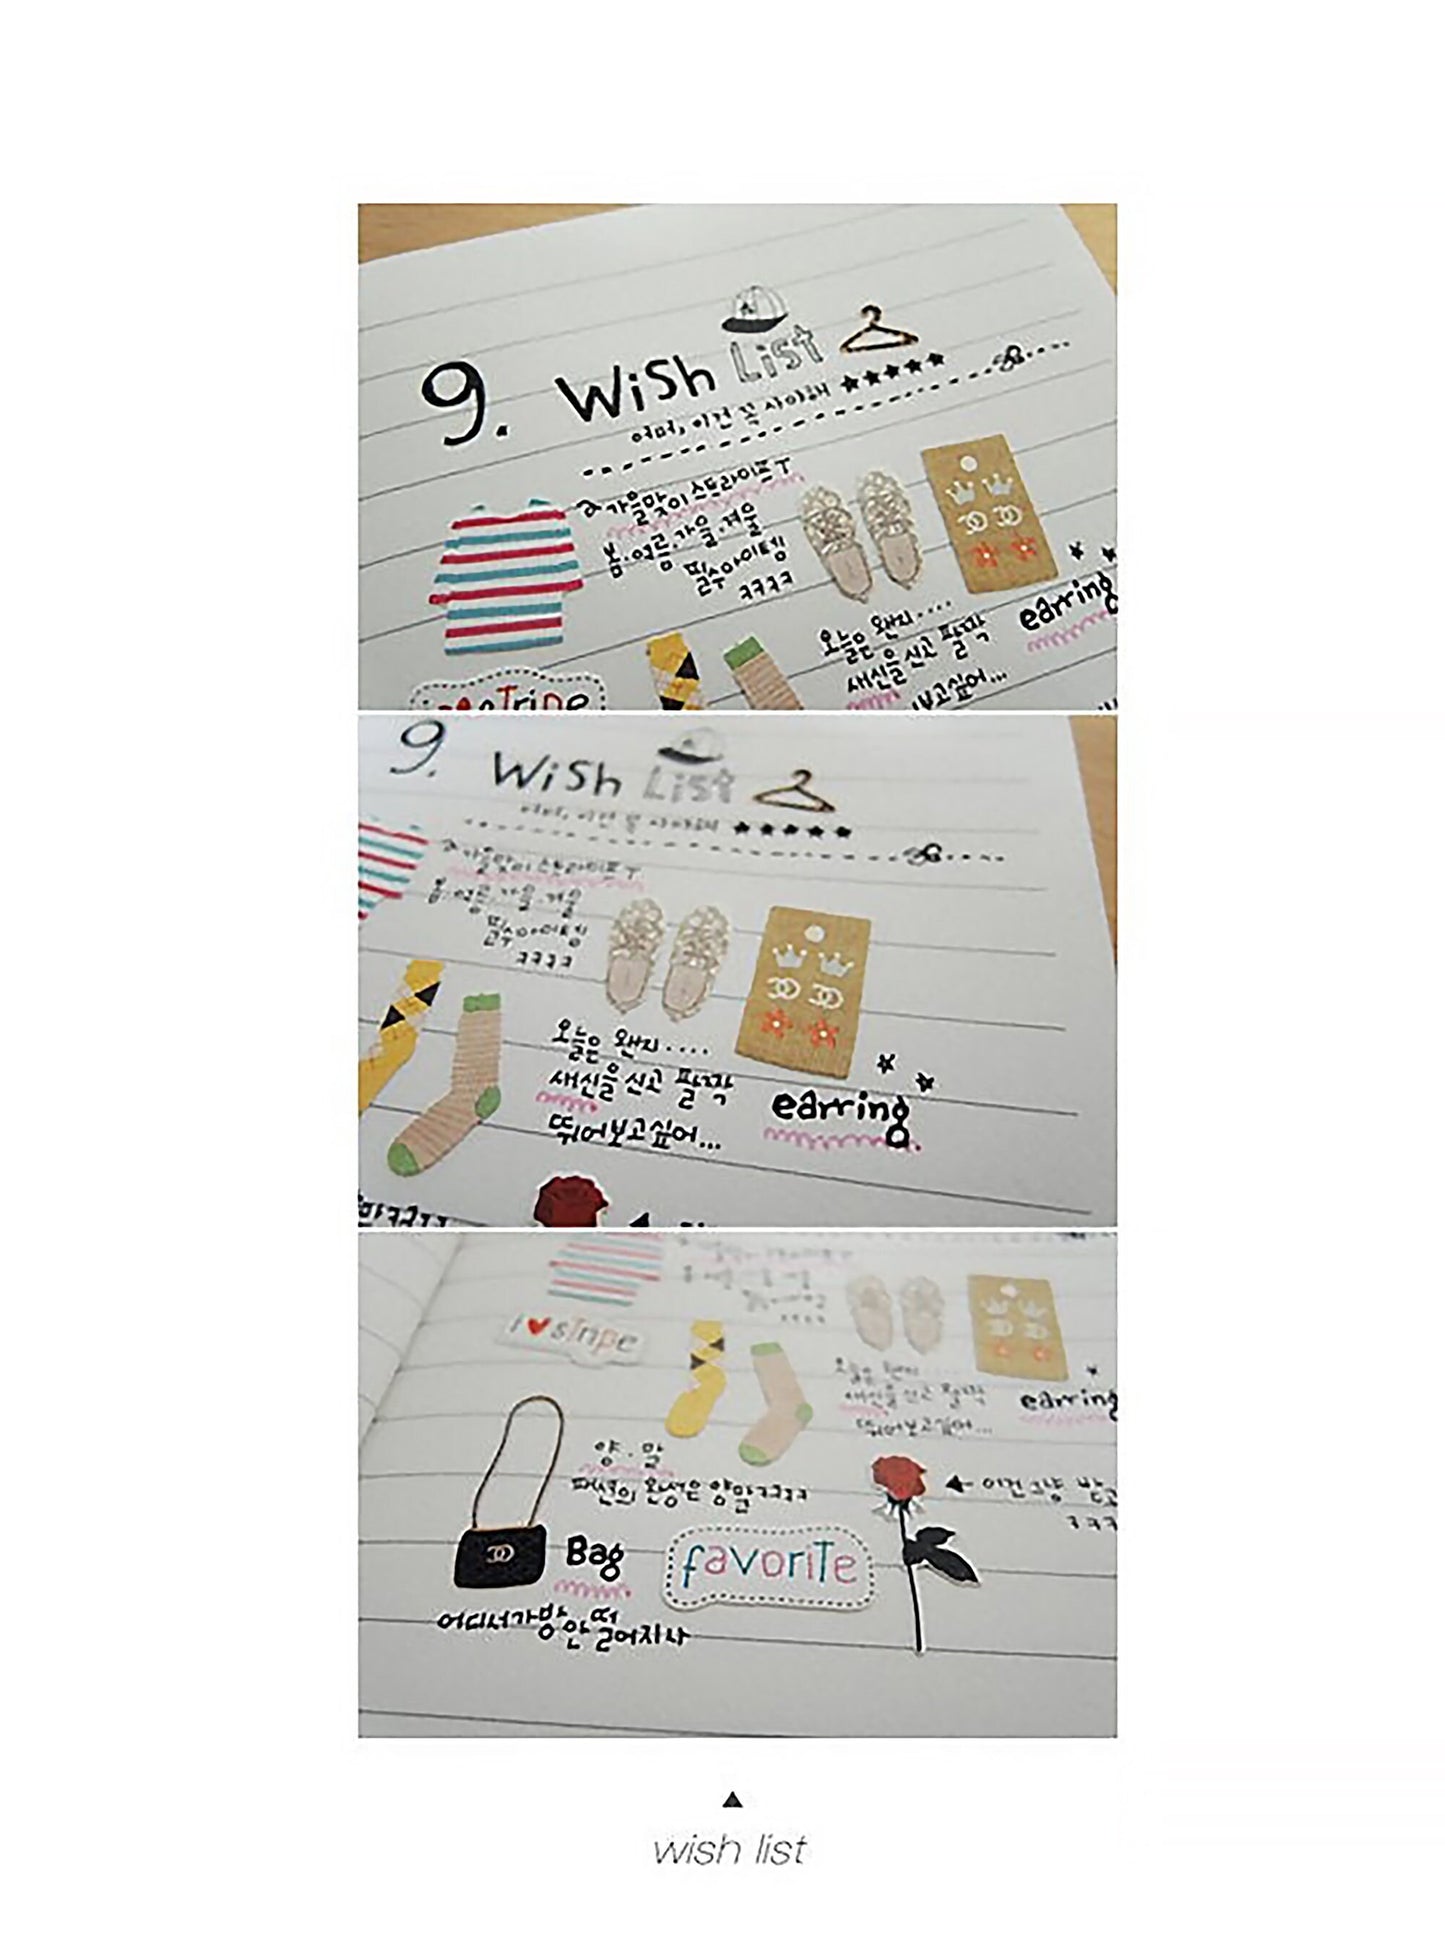 9. Wish List
어머, 이건 꼭 사야해 ★★★★★
가을맞이 스트라이프 T
봄.여름.가을.겨울
필수아이템
ㅋㅋㅋㅋ
오늘은 왠지....
새신을 신고 팔짝
뛰어보고싶어...
earring
9. Wish List
어머, 이건 꼭 사야해 ★★★★★
가을맞이 스트라이프 T
봄.여름.가을.겨울
필수아이템
ㅋㅋㅋㅋ
오늘은 왠지....
새신을 신고 팔짝
뛰어보고싶어...
earring
I ♥ sTripe
오늘은 왠지
새신을 신고 팔짝
뛰어보고싶어...
earring
양.말
패션의 완성은 양말ㅋㅋㅋㅋ
이건 그냥
ㅋㅋㅋ
Bag
favoriTe
어디서 가방 안 떨어지나
wish list